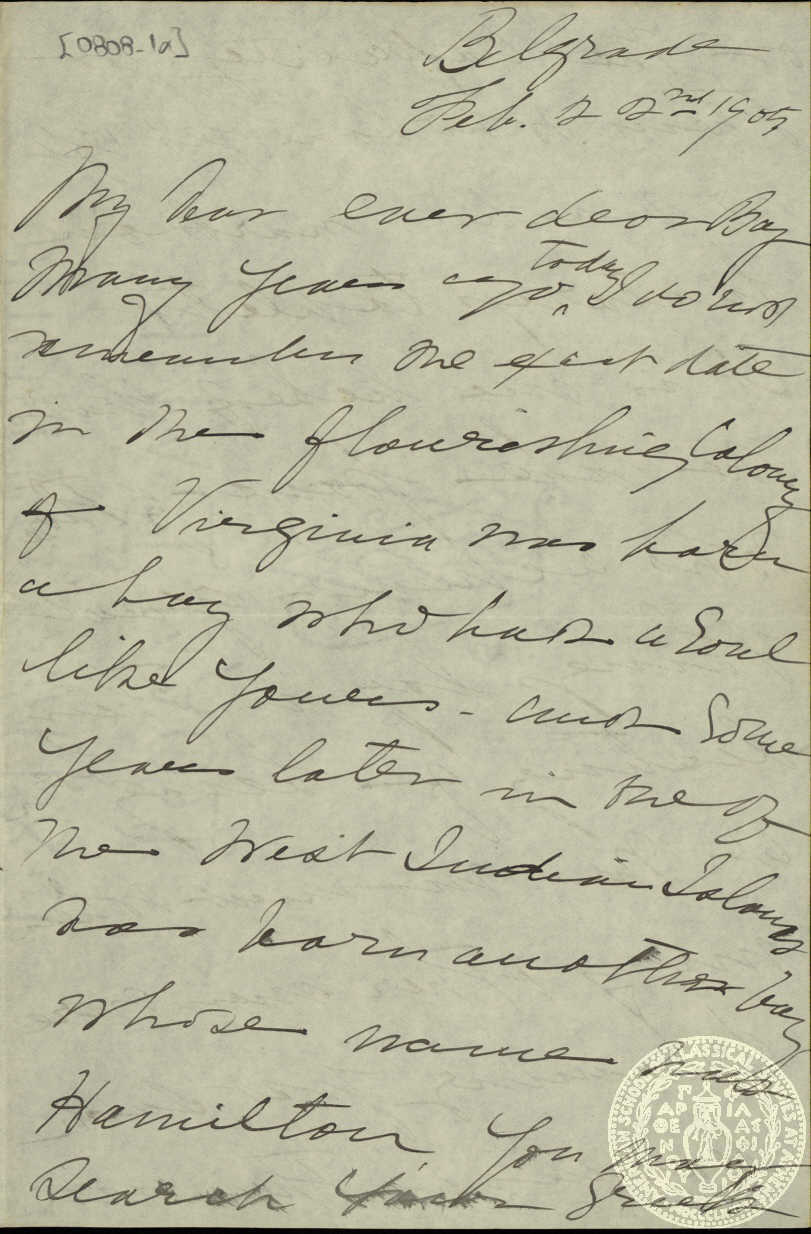 [0808-1a]
Belgrade
Feb. 22nd 1905
My dear ever dear Boy
Many years ago today I do not
remember the exact date
in the flourishing Colony
of Virginia was born
a boy who had a Soul
like yours - and Some
years later in one of
the West Indian Islands
was born another boy
whose name was
Hamilton You may
Search your Greeks